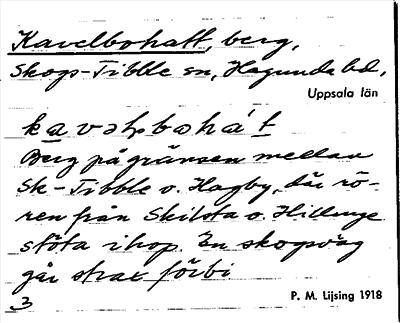 Kavelbohatt, berg,
Skogs-Tibble sn, Hagunda hd,
Uppsala län
kavəlbohát
Berg på gränsen mellan
Sk-Tibble o. Hagby, där rö-
ren från Skilsta o. Hillinge
stöta ihop. En skogsväg
går strax förbi
3
P. M. Lijsing 1918